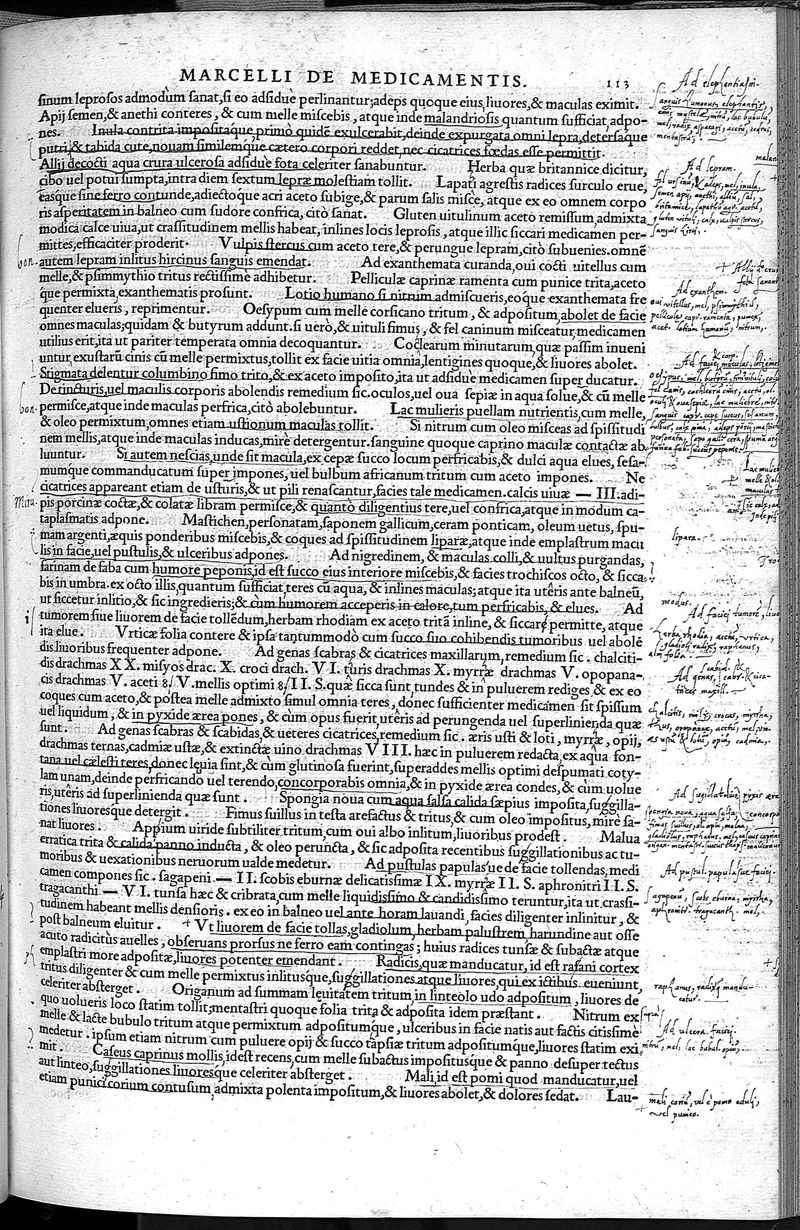 MARCELLI DE MEDICAMENTIS. 113
sinum leprosos admodùm sanat, si eo adsiduè perlinantur; adeps quoque eius, liuores, & maculas eximit.
Apij semen, & anethi conteres, & cum melle miscebis, atque inde malandriosis quantum sufficiat, adpo-
nes. Inula contrita impositaque, primò quidē exulcerabit, deinde expurgata omni lepra, detersaque
putri & tabida cute, nouam similemque cætero corpori reddet, nec cicatrices fœdas esse permittit.
Allij decocti aqua crura ulcerosa adsiduè fota celeriter sanabuntur. Herba quæ britannice dicitur,
cibo uel potui sumpta, intra diem sextum lepræ molestiam tollit. Lapati agrestis radices surculo erue,
easque sine ferro contunde, adiectoque acri aceto subige, & parum salis misce, atque ex eo omnem corpo
ris asperitatem in balneo cum sudore confrica, citò sanat. Gluten uitulinum aceto remissum, admixta
modica calce uiua, ut crassitudinem mellis habeat, inlines locis leprosis, atque illic siccari medicamen per-
mittes, efficaciter proderit. Vulpis stercus cum aceto tere, & perunge lepram, citò subuenies. omnē
autem lepram inlitus hircinus sanguis emendat. Ad exanthemata curanda, oui cocti uitellus cum
melle, & psimmythio tritus rectissimè adhibetur. Pelliculæ caprinæ ramenta cum punice trita, aceto
que permixta, exanthematis prosunt. Lotio humano si nitrum admiscueris, eoque exanthemata fre
quenter elueris, reprimentur. Oesypum cum melle corsicano tritum, & adpositum, abolet de facie
omnes maculas; quidam & butyrum addunt. si uerò, & uituli fimus, & fel caninum misceatur, medicamen
utilius erit, ita ut pariter temperata omnia decoquantur. Coclearum minutarum, quæ passim inueni
untur, exustarū cinis cū melle permixtus, tollit ex facie uitia omnia, lentigines quoque, & liuores abolet.
Stigmata delentur columbino fimo trito, & ex aceto imposito, ita ut adsiduè medicamen super ducatur.
De tincturis, uel maculis corporis abolendis remedium sic. oculos, uel oua sepiæ in aqua solue, & cū melle
permisce, atque inde maculas perfrica, citò abolebuntur. Lac mulieris puellam nutrientis, cum melle,
& oleo permixtum, omnes etiam ustionum maculas tollit. Si nitrum cum oleo misceas ad spissitudi
nem mellis, atque inde maculas inducas, mirè detergentur. sanguine quoque caprino maculæ contactæ ab
luuntur. Si autem nescias, unde sit macula, ex cepæ succo locum perfricabis, & dulci aqua elues, sesa-
mumque commanducatum super impones, uel bulbum africanum tritum cum aceto impones. Ne
cicatrices appareant etiam de usturis, & ut pili renascantur, facies tale medicamen. calcis uiuæ — III. adi-
pis porcinæ coctæ, & colatæ libram permisce, & quantò diligentius tere, uel confrica, atque in modum ca-
taplasmatis adpone. Mastichen, personatam, saponem gallicum, ceram ponticam, oleum uetus, spu-
mam argenti, æquis ponderibus miscebis, & coques ad spissitudinem liparæ, atque inde emplastrum macu
lis in facie, uel pustulis, & ulceribus adpones. Ad nigredinem, & maculas colli, & uultus purgandas,
farinam de faba cum humore peponis, id est succo eius interiore miscebis, & facies trochiscos octo, & sicca-
bis in umbra. ex octo illis, quantum sufficiat, teres cū aqua, & inlines maculas; atque ita utêris ante balneū,
ut siccetur inlitio, & sic ingredieris; & cum humorem acceperis in calore, tum perfricabis, & elues. Ad
tumorem siue liuorem de facie tollēdum, herbam rhodiam ex aceto tritā inline, & siccare permitte, atque
ita elue. Vrticæ folia contere & ipsa tantummodò cum succo suo cohibendis tumoribus uel abolē
dis liuoribus frequenter adpone. Ad genas scabras & cicatrices maxillarum, remedium sic. chalciti-
dis drachmas XX. misyos drac. X. croci drach. VI. turis drachmas X. myrræ drachmas V. opopana-
cis drachmas V. aceti V. mellis optimi II S. quæ sicca sunt, tundes & in puluerem rediges, & ex eo
coques cum aceto, & postea melle admixto simul omnia teres, donec sufficienter medicamen sit spissum
uel liquidum, & in pyxide ærea pones, & cùm opus fuerit, utêris ad perungenda uel superlinienda quæ
sunt. Ad genas scabras & scabidas, & ueteres cicatrices, remedium sic. æris usti & loti, myrræ, opij,
drachmas ternas, cadmiæ ustæ, & extinctæ uino drachmas VIII. hæc in puluerem redacta, ex aqua fon-
tana uel cælesti teres, donec leuia sint, & cùm glutinosa fuerint, superaddes mellis optimi despumati coty-
lam unam, deinde perfricando uel terendo, concorporabis omnia, & in pyxide ærea condes, & cùm uolue
ris, utêris ad superlinienda quæ sunt. Spongia noua cum aqua salsa calida sæpius imposita, suggilla-
tiones liuoresque detergit. Fimus suillus in testa arefactus & tritus, & cum oleo impositus, mirè sa-
nat liuores. Appium uiride subtiliter tritum, cum oui albo inlitum, liuoribus prodest. Malua
erratica trita & calida panno inducta, & oleo peruncta, & sic adposita recentibus suggillationibus ac tu-
moribus & uexationibus neruorum ualde medetur. Ad pustulas papulasue de facie tollendas, medi
camen compones sic. sagapeni — II. scobis eburnæ delicatissimæ IX. myrræ II S. aphronitri II S.
tragacanthi — VI. tunsa hæc & cribrata, cum melle liquidissimo & candidissimo teruntur, ita ut crassi-
tudinem habeant mellis densioris. ex eo in balneo uel ante horam lauandi, facies diligenter inlinitur, &
post balneum eluitur. + Vt liuorem de facie tollas, gladiolum, herbam palustrem, harundine aut osse
acuto radicitùs auelles, obseruans prorsus ne ferro eam contingas; huius radices tunsæ & subactæ atque
emplastri more adpositæ, liuores potenter emendant. Radicis, quæ manducatur, id est rafani cortex
tritus diligenter & cum melle permixtus inlitusque, suggillationes atque liuores, qui ex ictibus eueniunt,
celeriter absterget. Origanum ad summam leuitatem tritum in linteolo udo adpositum, liuores de
quo uolueris loco statim tollit; mentastri quoque folia trita & adposita idem præstant. Nitrum ex
melle & lacte bubulo tritum atque permixtum adpositumque, ulceribus in facie natis aut factis citissimè
medetur. ipsum etiam nitrum cum puluere opij & succo tapsiæ tritum adpositumque, liuores statim exi
mit. Caseus caprinus mollis, id est recens, cum melle subactus impositusque & panno desuper tectus
aut linteo, suggillationes liuoresque celeriter absterget. Mali, id est pomi quod manducatur, uel
etiam punici corium contusum, admixta polenta impositum, & liuores abolet, & dolores sedat. Lau-
Ad elephantiasin.
Ad lepram.
bon.
Ad exanthem.
bon.
Miru.
lipara.
modus.
Ad faciei tumorē, liuo
Ad genas scabr. & cica-
trices maxill.
Ad pustul. papulasue faciei.
Ad ulcera faciei.
mali corium, vel è pomo eduli,
vel punico.